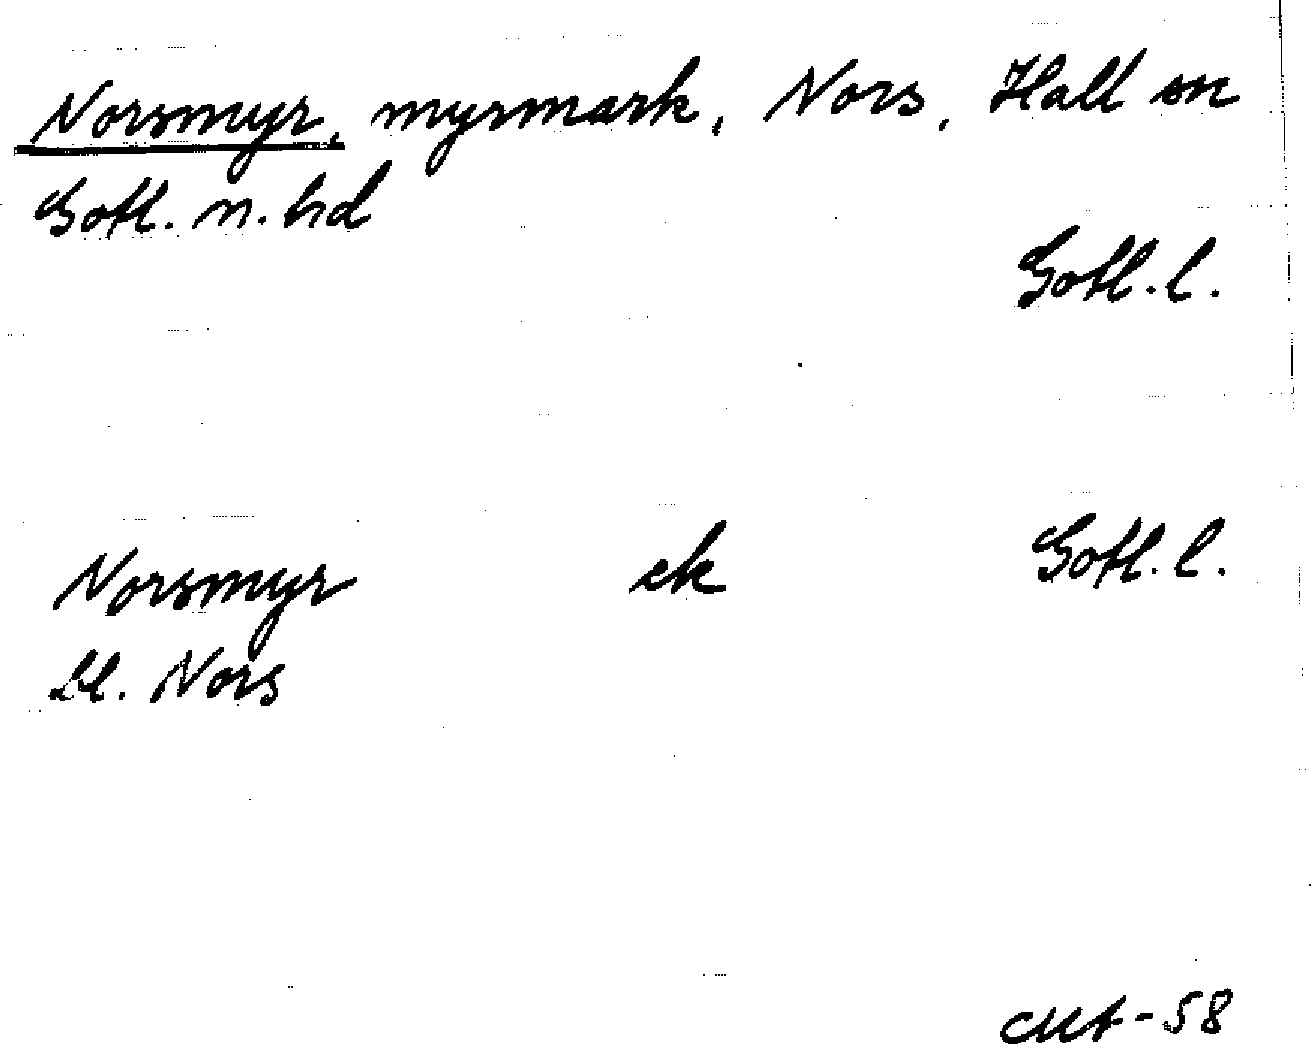 Norsmyr, myrmark, Nors, Hall sn
Gotl. n. hd
Gotl. l.
Norsmyr ek Gotl. l.
Ll. Nors
CMA-58